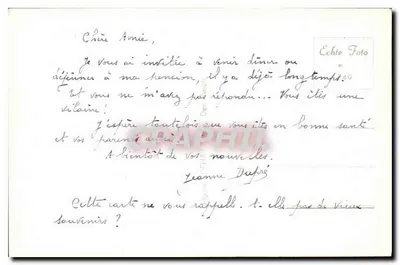 Chère Amie,
Echte Foto
Je vous ai invitée à venir dîner ou
déjeuner à ma pension, il y a déjà longtemps.
Et vous ne m'avez pas répondu... Vous êtes une
vilaine!
J'espère toutefois que vous êtes en bonne santé
et vos parents aussi.
A bientôt de vos nouvelles.
Jeanne Dupré
Cette carte ne vous rappelle-t-elle pas de vieux
souvenirs?